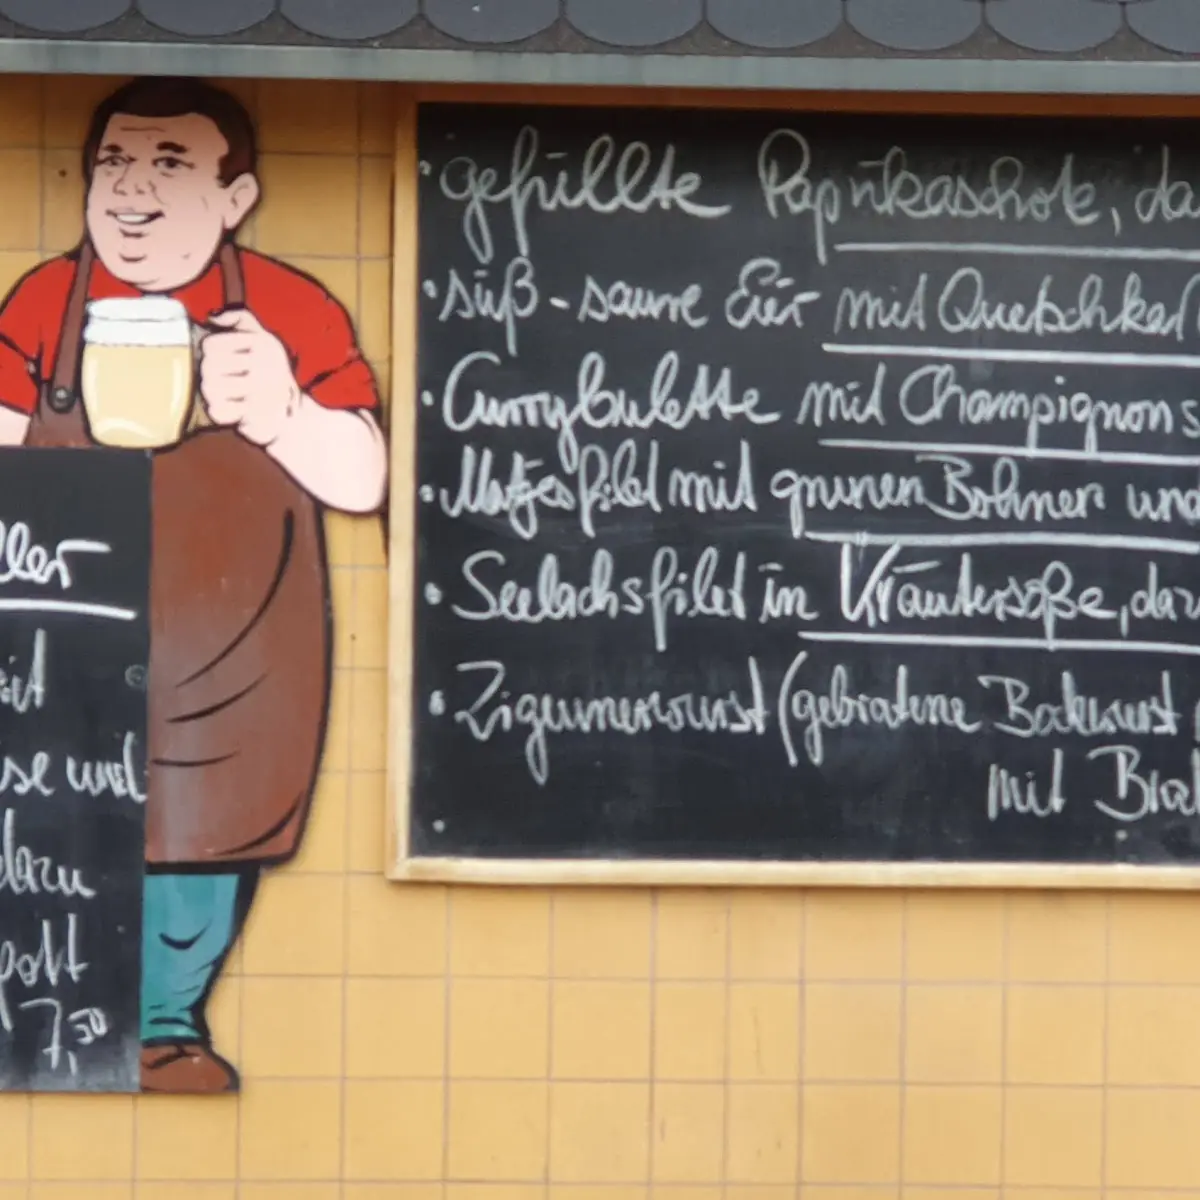 ller
it
ise und
dazu
pott
7,50
• gefüllte Paprikaschote, da
• süß-saure Eier mit Quetschkar
• Currybulette mit Champignons
• Matjesfilet mit grünen Bohnen und
• Seelachsfilet in Kräutersoße, daz
• Zigeunerwurst (gebratene Bockwurst
mit Brat
•